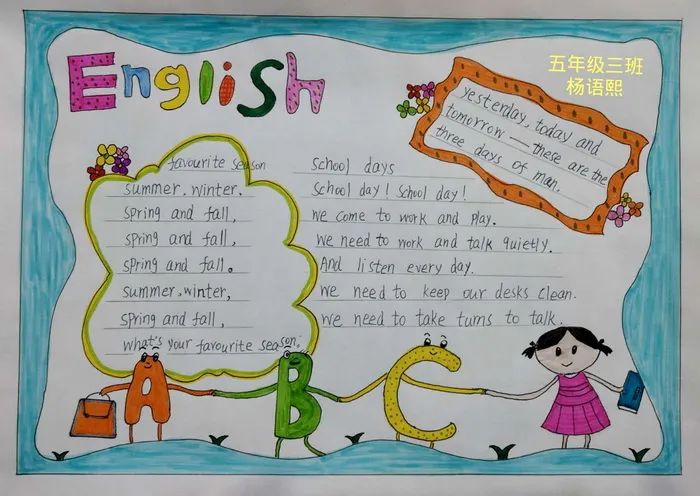 English
五年级三班
杨语熙
yesterday, today and
tomorrow — these are the
three days of man.
favourite season
summer, winter,
spring and fall,
spring and fall,
spring and fall。
summer, winter,
spring and fall,
what's your favourite season,
School days
School day! School day!
We come to work and play.
We need to work and talk quietly.
And listen every day.
We need to keep our desks clean.
We need to take turns to talk.
A B C